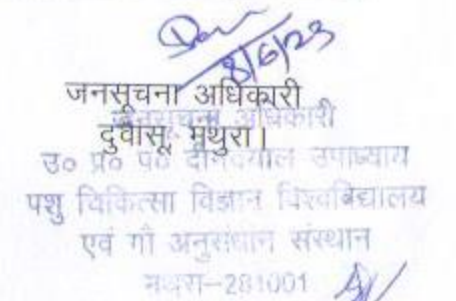 8/6/23
जनसूचना अधिकारी
जनसूचना अधिकारी
दुवासू, मथुरा।
उ० प्र० पं० दीनदयाल उपाध्याय
पशु चिकित्सा विज्ञान विश्वविद्यालय
एवं गौ अनुसंधान संस्थान
मथुरा-281001